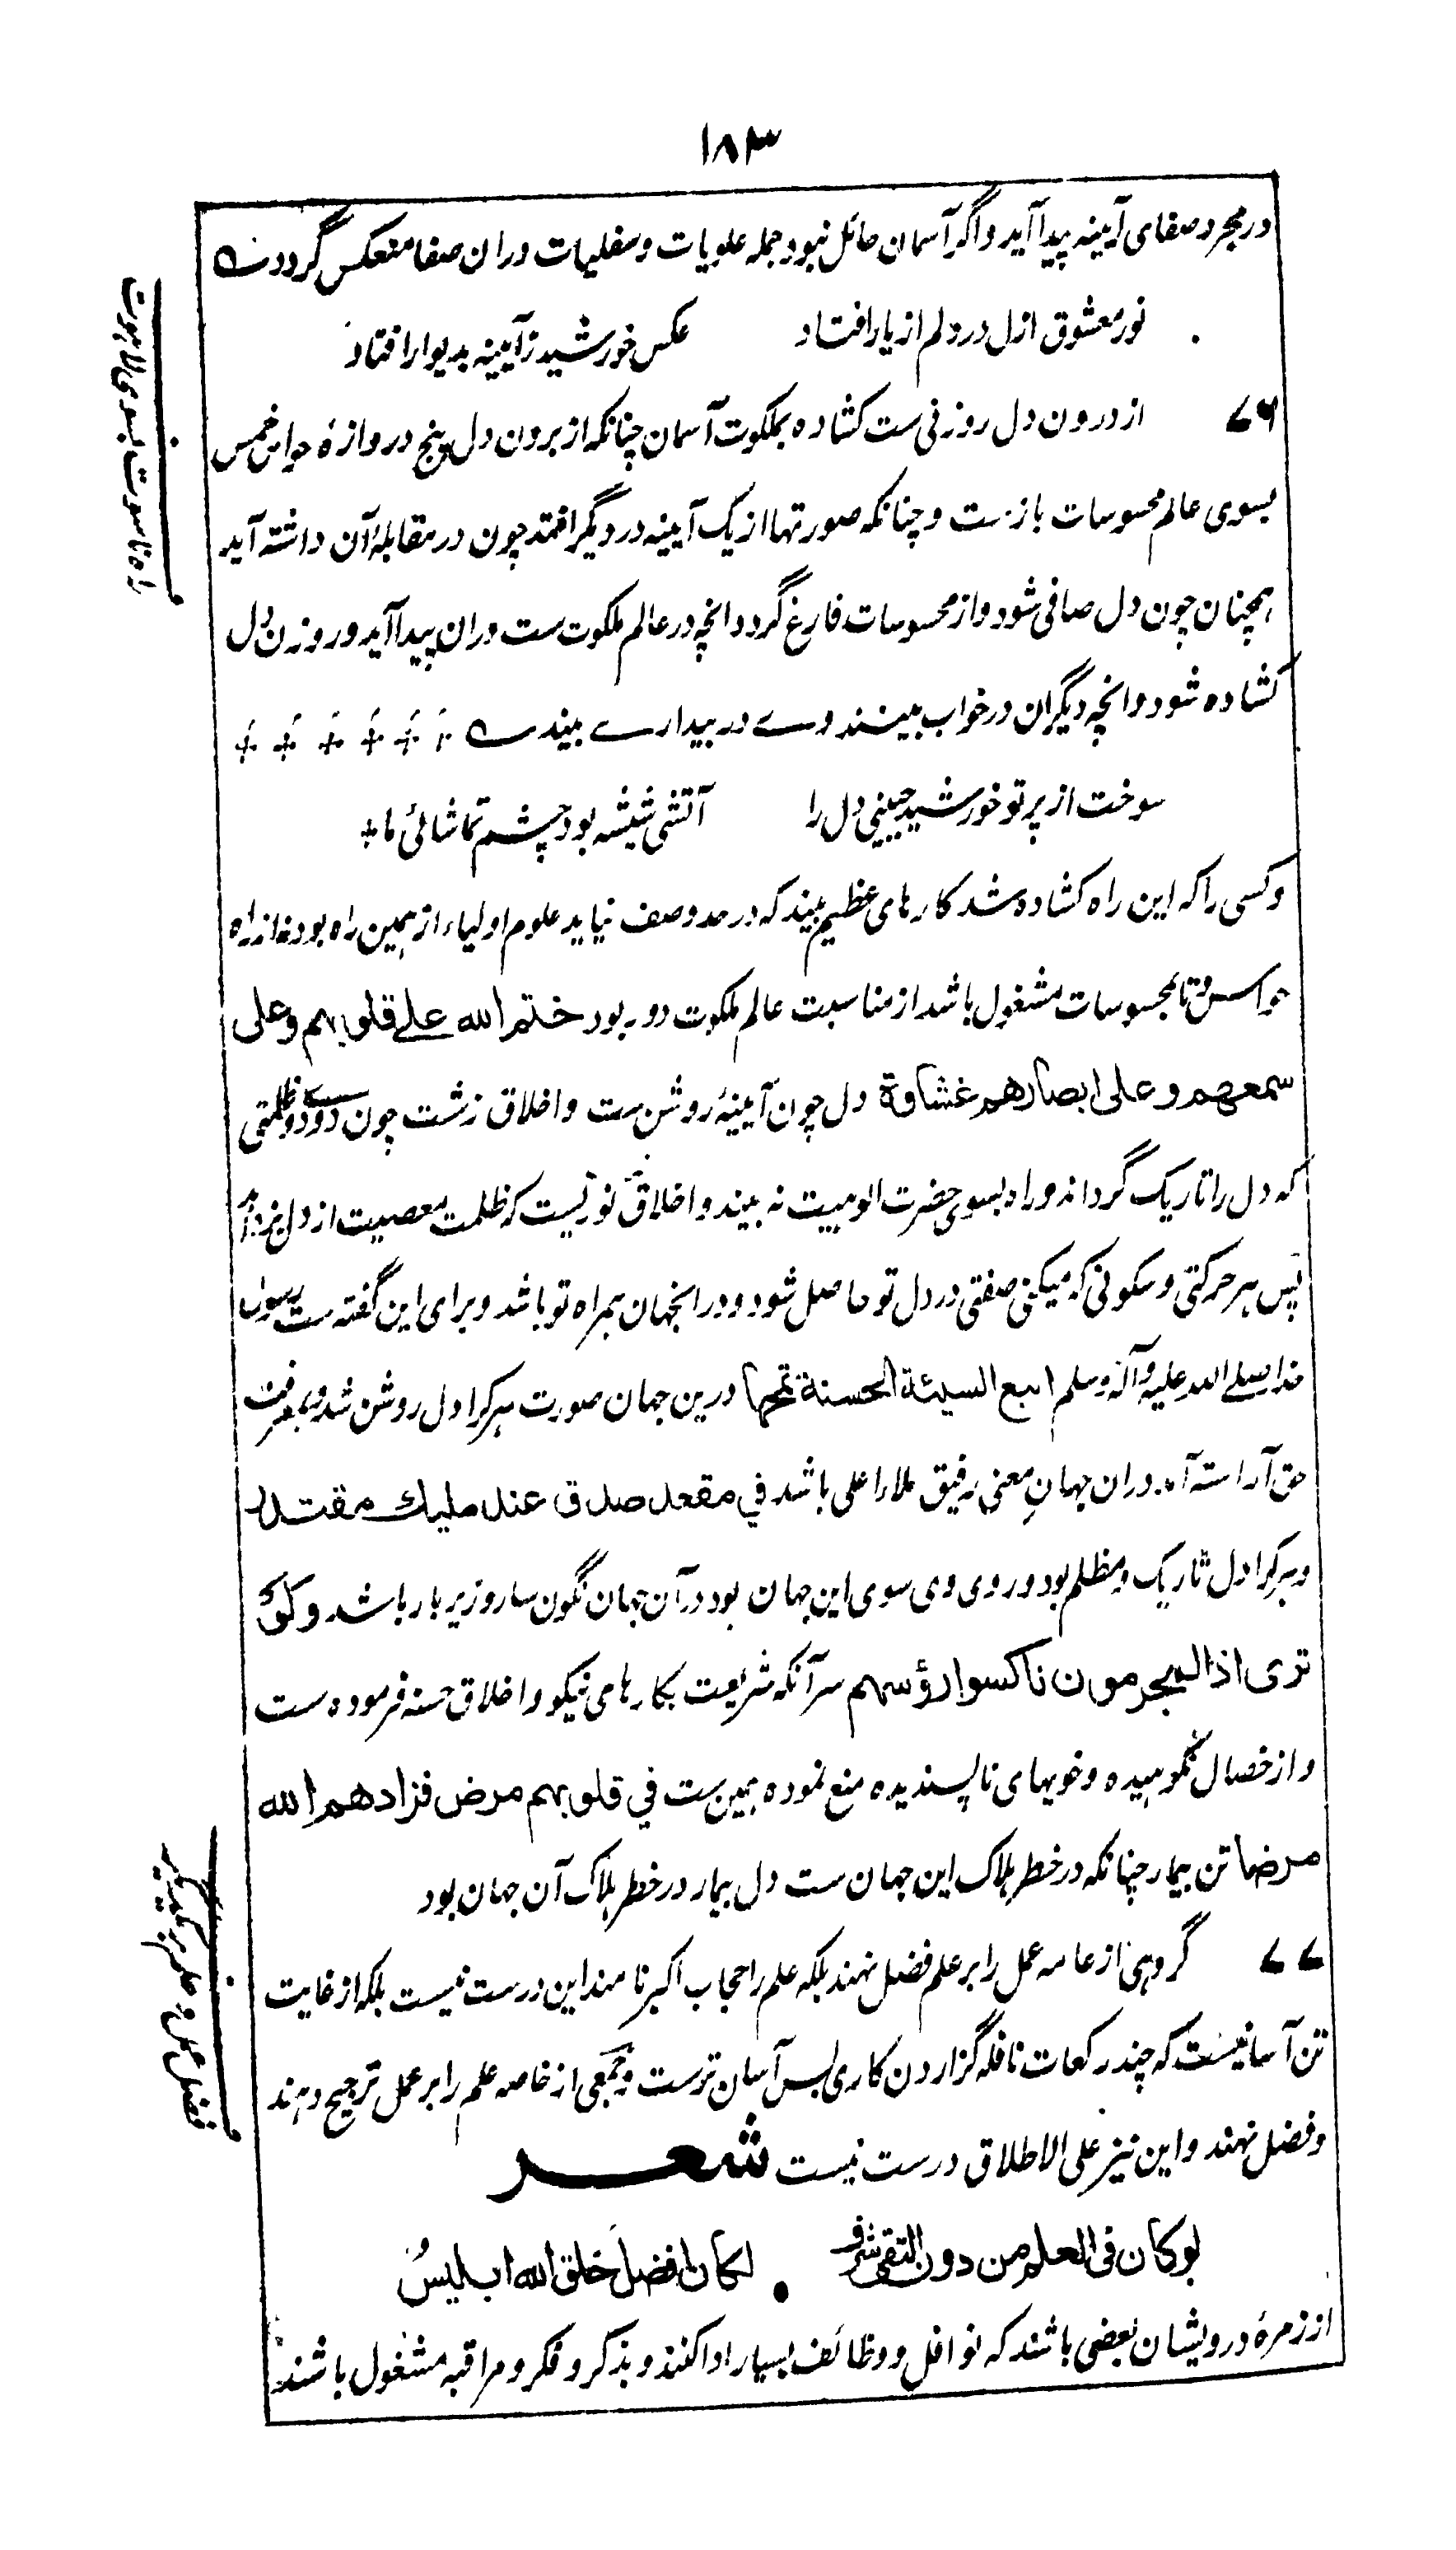 ۱۸۳
در مجرد صفای آیینه پیدا آید و اگر آسمان حائل نبود جمله علویات و سفلیات دران صفا منعکس گردد
نور معشوق ازل در دلم از یار افتاد
عکس خورشید ز آیینه بدیوار افتاد
۷۶ از درون دل روزنی ست کشاده بملکوت آسمان چنانکه از برون دل پنج دروازهٔ حواس خمس
بسوی عالم محسوسات بازست و چنانکه صورتها از یک آیینه در دیگر افتد چون در مقابلهٔ آن داشته آید
همچنان چون دل صافی شود و از محسوسات فارغ گردد انچه در عالم ملکوت ست دران پیدا آید و روزن دل
کشاده شود و انچه دیگران در خواب بینند وے در بیدارے بیند
سوخت از پرتو خورشید جبینی دل را
آتشی شیشه بود چشم تماشائی ما
و کسی را که این راه کشاده شد کارهای عظیم بیند که در حد وصف نیاید علوم اولیاء از همین راه بود نه از راه
حواس و تا بمحسوسات مشغول باشد از مناسبت عالم ملکوت دور بود ختم الله علے قلوبهم وعلی
سمعهم وعلی ابصارهم غشاوة دل چون آیینهٔ روشن ست و اخلاق زشت چون دودی و ظلمتی
که دل را تاریک گرداند و راه بسوی حضرت الوهیت نه بیند و اخلاق نوریست که ظلمت معصیت از دل بزداید
پس هر حرکتی و سکونی که میکنی صفتی در دل تو حاصل شود و دران جهان همراه تو باشد و برای این گفته ست رسول
خدا صلے الله علیه وآله وسلم اتبع السیئة الحسنة تمحها درین جهان صورت هر کرا دل روشن شد و بمعرفت
حق آراسته آمد دران جهانِ معنی رفیق ملاء اعلی باشد في مقعد صدق عند ملیك مقتدر
و هر کرا دل تاریک و مظلم بود و روی وی سوی این جهان بود در آن جهان نگون سار و زیر بار باشد ولو
تری اذ المجرمون ناکسوا رؤسهم سر آنکه شریعت بکارهای نیکو و اخلاق حسنه فرموده ست
و از خصال نکوهیده و خویهای ناپسندیده منع نموده همین ست في قلوبهم مرض فزادهم الله
مرضا تن بیمار چنانکه در خطر هلاک این جهان ست دل بیمار در خطر هلاک آن جهان بود
۷۷ گروهی از عامه عمل را بر علم فضل نهند بلکه علم را حجاب اکبر نامند این درست نیست بلکه از غایت
تن آسانیست که چند رکعات نافله گزاردن کاری بس آسان ترست و جمعی از خاصه علم را بر عمل ترجیح دهند
و فضل نهند و این نیز علی الاطلاق درست نیست شعر
لو کان فی العلم من دون التقی شرف
لکان افضل خلق الله ابلیسُ
از زمرهٔ درویشان بعضی باشند که نوافل و وظائف بسیار ادا کنند و بذکر و فکر و مراقبه مشغول باشند